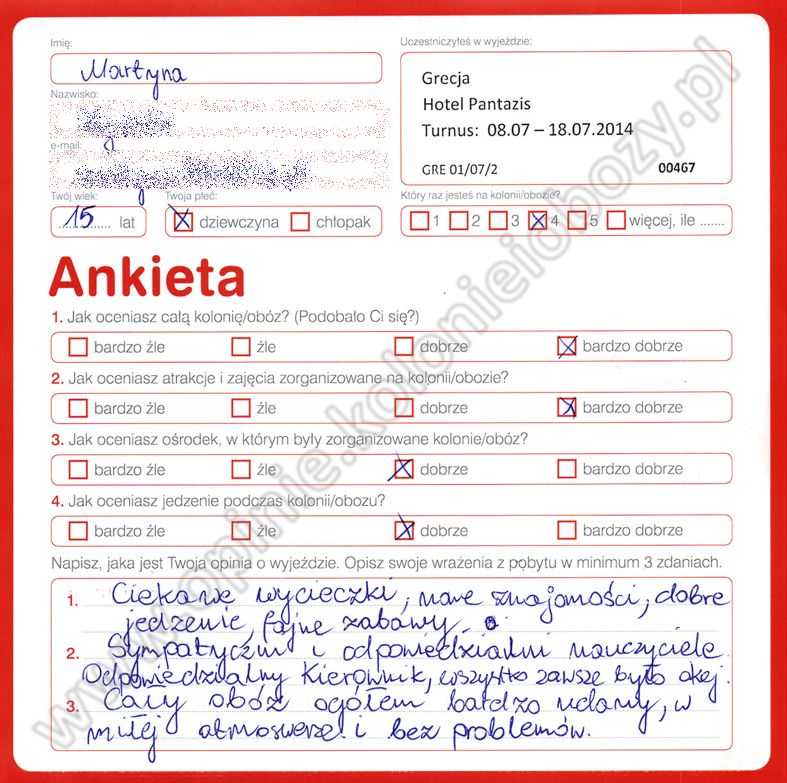 Imię:
Martyna
Nazwisko:
e-mail:
Twój wiek:
15 lat
Twoja płeć:
dziewczyna chłopak
Uczestniczyłeś w wyjeździe:
Grecja
Hotel Pantazis
Turnus: 08.07 – 18.07.2014
GRE 01/07/2 00467
Który raz jesteś na kolonii/obozie?
1 2 3 4 5 więcej, ile .......
Ankieta
1. Jak oceniasz całą kolonię/obóz? (Podobało Ci się?)
bardzo źle źle dobrze bardzo dobrze
2. Jak oceniasz atrakcje i zajęcia zorganizowane na kolonii/obozie?
bardzo źle źle dobrze bardzo dobrze
3. Jak oceniasz ośrodek, w którym były zorganizowane kolonie/obóz?
bardzo źle źle dobrze bardzo dobrze
4. Jak oceniasz jedzenie podczas kolonii/obozu?
bardzo źle źle dobrze bardzo dobrze
Napisz, jaka jest Twoja opinia o wyjeździe. Opisz swoje wrażenia z pobytu w minimum 3 zdaniach.
1. Ciekawe wycieczki, nowe znajomości, dobre
jedzenie, fajne zabawy.
2. Sympatyczni i odpowiedzialni nauczyciele.
Odpowiedzialny Kierownik, wszystko zawsze było okej.
3. Cały obóz ogółem bardzo udany, w
miłej atmoswerze i bez problemów.
www.opinie.kolonieiobozy.pl